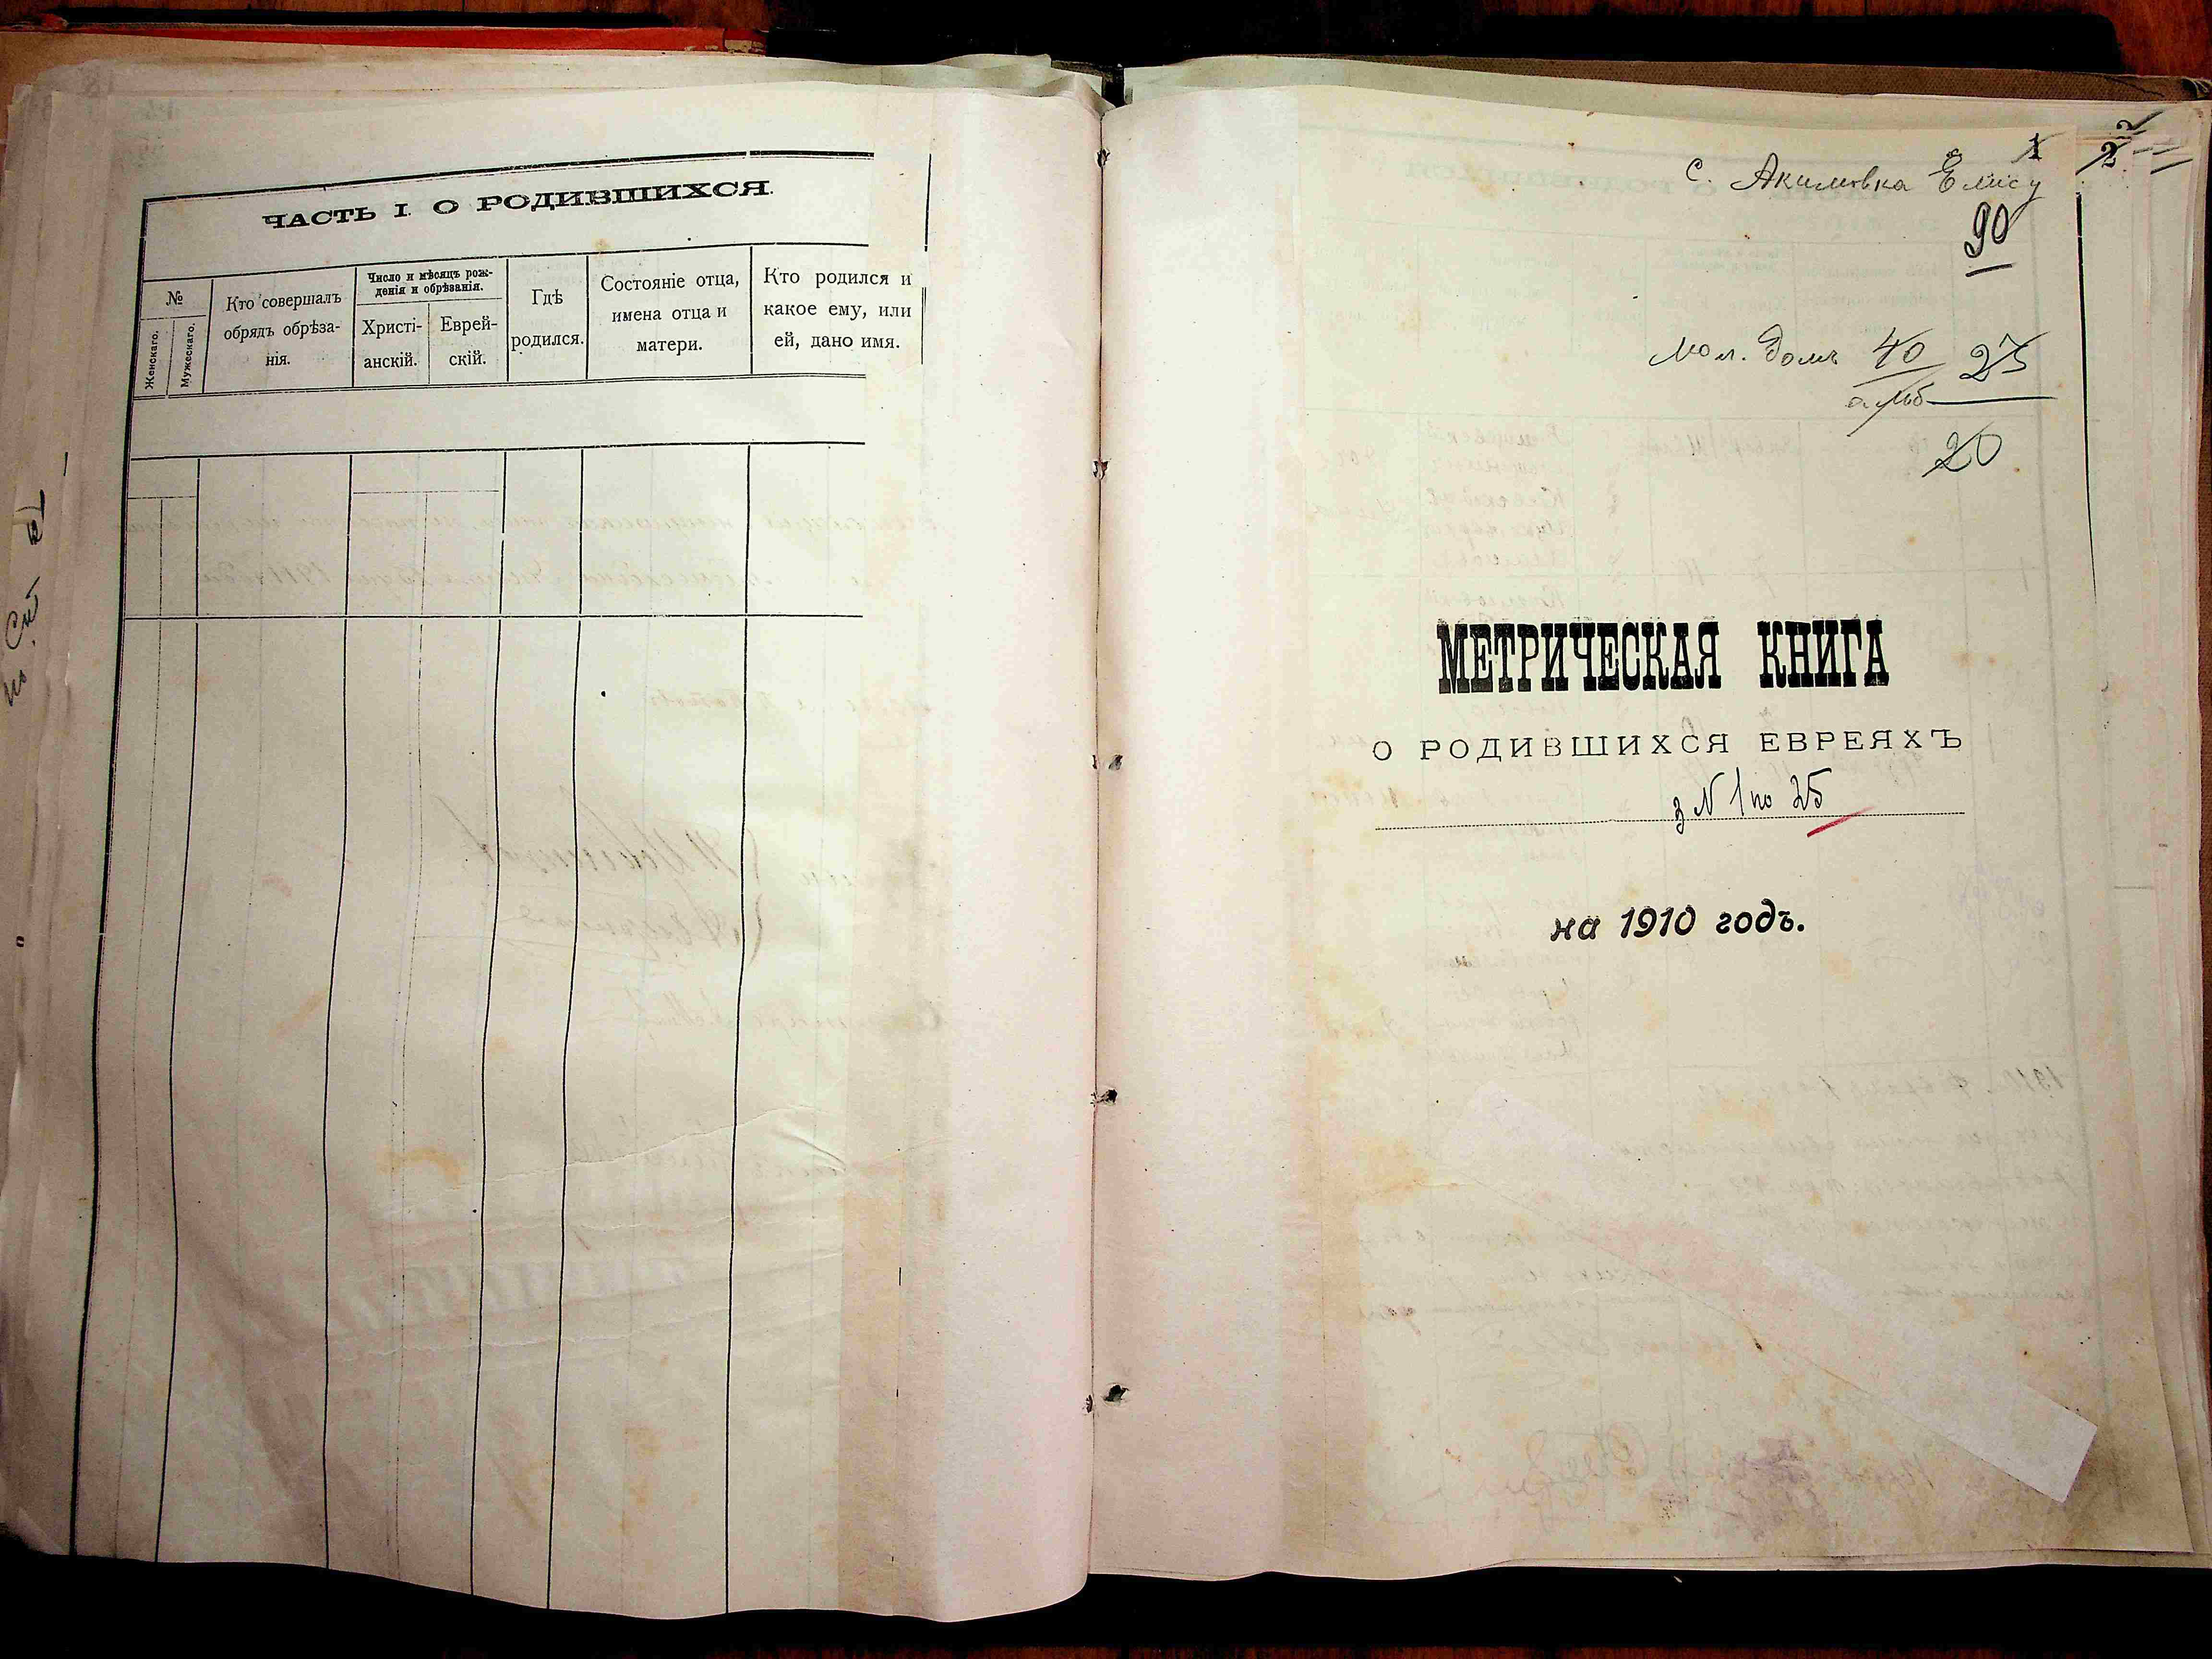 ЧАСТЬ I. О РОДИВШИХСЯ.
№
Женскаго.
Мужескаго.
Кто совершалъ
обрядъ обрѣза-
нія.
Число и мѣсяцъ рож-
денія и обрѣзанія.
Христі-
анскій.
Еврей-
скій.
Гдѣ
родился.
Состояніе отца,
имена отца и
матери.
Кто родился и
какое ему, или
ей, дано имя.
1
2
с. Акимовка
90
Мол. Домъ 40 25
20
МЕТРИЧЕСКАЯ КНИГА
О РОДИВШИХСЯ ЕВРЕЯХЪ
з N 1 по 25
на 1910 годъ.